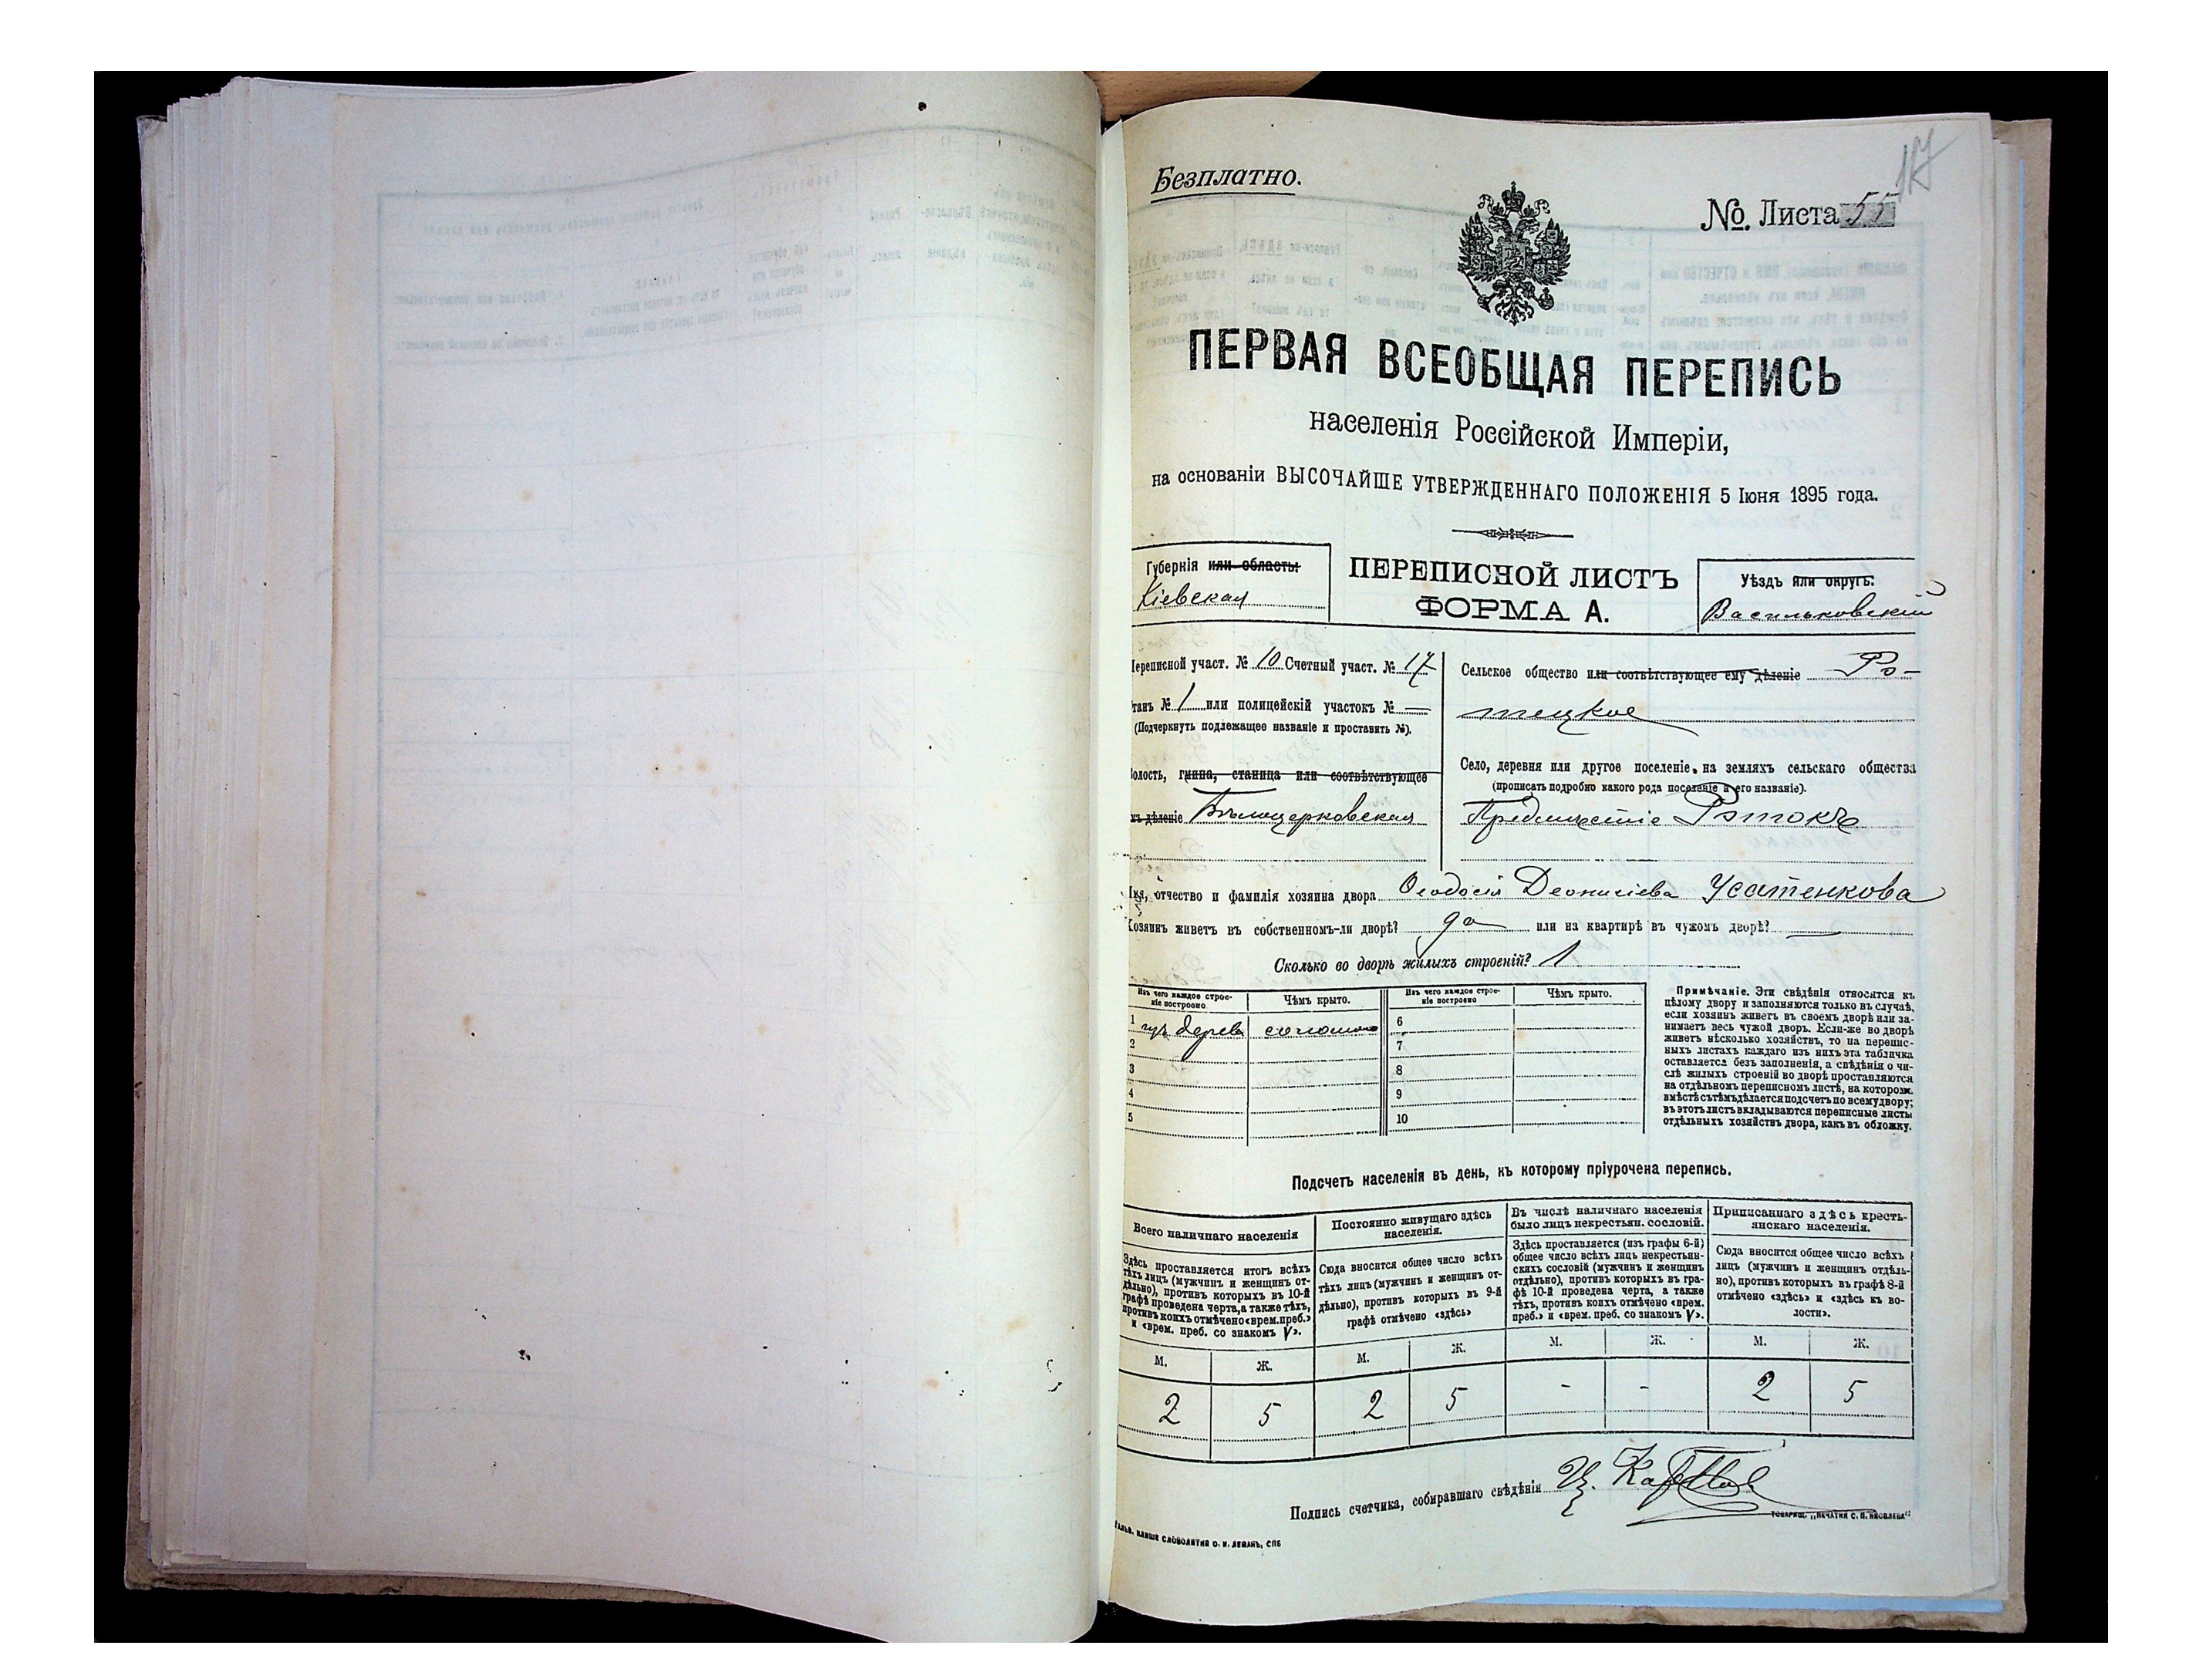 Безплатно.
117
№. Листа 55
ПЕРВАЯ ВСЕОБЩАЯ ПЕРЕПИСЬ
населенія Россійской Имперіи,
на основаніи ВЫСОЧАЙШЕ УТВЕРЖДЕННАГО ПОЛОЖЕНІЯ 5 Іюня 1895 года.
Губернія или область:
Кіевская
ПЕРЕПИСНОЙ ЛИСТЪ
ФОРМА А.
Уѣздъ или округъ:
Васильковскій
Переписной участ. № 10 Счетный участ. № 17
Станъ № 1 или полицейскій участокъ № —
(Подчеркнуть подлежащее названіе и проставить №).
Волость, гмина, станица или соотвѣтствующее
имъ дѣленіе Бѣлоцерковская
Сельское общество или соотвѣтствующее ему дѣленіе Ро-
тецкое
Село, деревня или другое поселеніе, на земляхъ сельскаго общества
(прописать подробно какого рода поселеніе и его названіе).
Предмѣстіе Ротокъ
Имя, отчество и фамилія хозяина двора Ѳеодосія Деонисіева Усатенкова
Хозяинъ живетъ въ собственномъ-ли дворѣ? да или на квартирѣ въ чужомъ дворѣ? —
Сколько во дворѣ жилыхъ строеній? 1
Изъ чего каждое строе-
ніе построено
Чѣмъ крыто.
Изъ чего каждое строе-
ніе построено
Чѣмъ крыто.
1 изъ дерева соломою 6
2 7
3 8
4 9
5 10
Примѣчаніе. Эти свѣдѣнія относятся къ
цѣлому двору и заполняются только въ случаѣ,
если хозяинъ живетъ въ своемъ дворѣ или за-
нимаетъ весь чужой дворъ. Если-же во дворѣ
живетъ нѣсколько хозяйствъ, то на перепис-
ныхъ листахъ каждаго изъ нихъ эта табличка
оставляется безъ заполненія, а свѣдѣнія о чи-
слѣ жилыхъ строеній во дворѣ проставляются
на отдѣльномъ переписномъ листѣ, на которомъ
вмѣстѣ съ тѣмъ дѣлается подсчетъ по всему двору;
въ этотъ листъ вкладываются переписные листы
отдѣльныхъ хозяйствъ двора, какъ въ обложку.
Подсчетъ населенія въ день, къ которому пріурочена перепись.
Всего наличнаго населенія
Здѣсь проставляется итогъ всѣхъ
тѣхъ лицъ (мужчинъ и женщинъ от-
дѣльно), противъ которыхъ въ 10-й
графѣ проведена черта, а также тѣхъ,
противъ коихъ отмѣчено «врем. преб.»
и «врем. преб. со знакомъ V».
Постоянно живущаго здѣсь
населенія.
Сюда вносится общее число всѣхъ
тѣхъ лицъ (мужчинъ и женщинъ от-
дѣльно), противъ которыхъ въ 9-й
графѣ отмѣчено «здѣсь»
Въ числѣ наличнаго населенія
было лицъ некрестьян. сословій.
Здѣсь проставляется (изъ графы 6-й)
общее число всѣхъ лицъ некрестьян-
скихъ сословій (мужчинъ и женщинъ
отдѣльно), противъ которыхъ въ гра-
фѣ 10-й проведена черта, а также
тѣхъ, противъ коихъ отмѣчено «врем.
преб.» и «врем. преб. со знакомъ V».
Приписаннаго здѣсь кресть-
янскаго населенія.
Сюда вносится общее число всѣхъ
лицъ (мужчинъ и женщинъ отдѣль-
но), противъ которыхъ въ графѣ 8-й
отмѣчено «здѣсь» и «здѣсь къ во-
лости».
М. Ж. М. Ж. М. Ж. М. Ж.
2 5 2 5 - - 2 5
Подпись счетчика, собиравшаго свѣдѣнія
ГАЛЬВ. КЛИШЕ СЛОВОЛИТНЯ О. И. ЛЕМАНЪ, СПБ
ТОВАРИЩ. „ПЕЧАТНЯ С. П. ЯКОВЛЕВА"